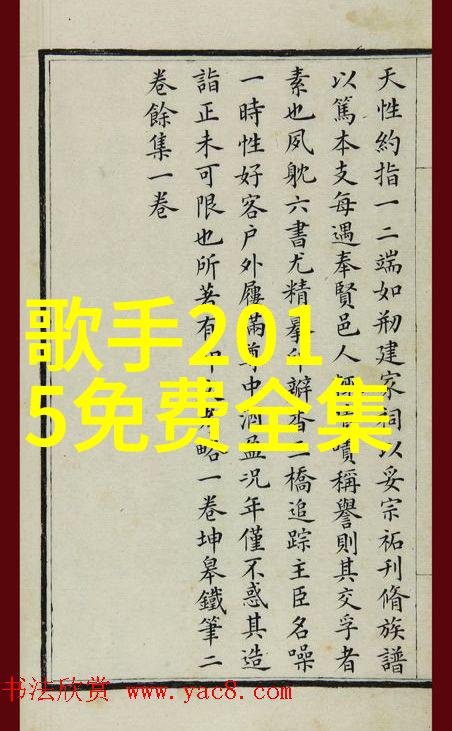 天性約指一二端如剏建家祠以妥宗祏刊脩族譜
以篤本支每遇奉賢邑人嘖稱譽則其交孚者
素也夙躭六書尤精摹印瓣香二橋追踪主臣名噪
一時性好客户外屨滿尊中酒盈況年僅不惑其造
詣正未可限也所著有印略一卷坤皋鐵筆二
卷餘集一卷
歌手201
5免费全集
书法欣赏 www.yac8.com